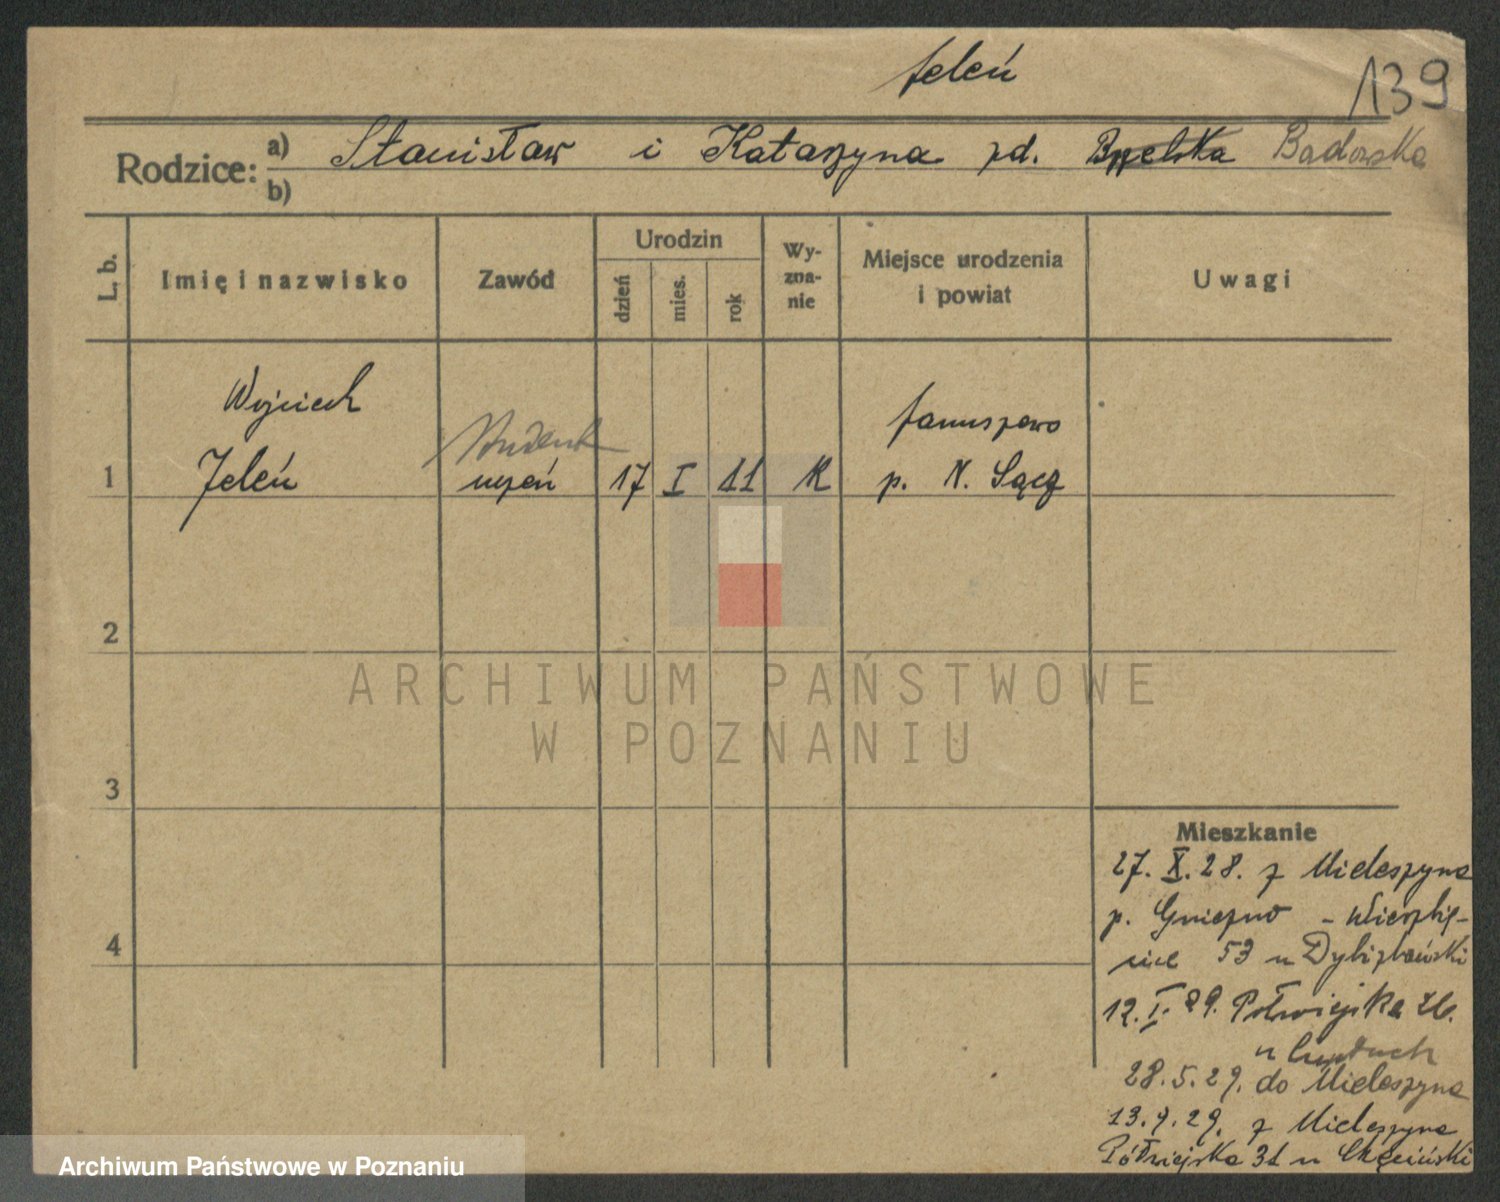 Jeleń
139
Rodzice: a) Stanisław i Katarzyna zd. Bąbelska Badowska
b)
L. b.
Imię i nazwisko
Zawód
Urodzin
dzień
mies.
rok
Wy-
zna-
nie
Miejsce urodzenia
i powiat
Uwagi
Wojciech
Student
Januszowa
1 Jeleń uczeń 17 I 11 R p. N. Sącz
2
3
4
ARCHIWUM PAŃSTWOWE
W POZNANIU
Mieszkanie
27. X. 28. z Mieleszyna
p. Gniezno - Wierzbię-
cice 53 u Dybizbański
12. I. 29. Półwiejska
u
28.5.29. do Mieleszyna
13.9.29. z Mieleszyna
Półwiejska 31 u Chęciński
Archiwum Państwowe w Poznaniu